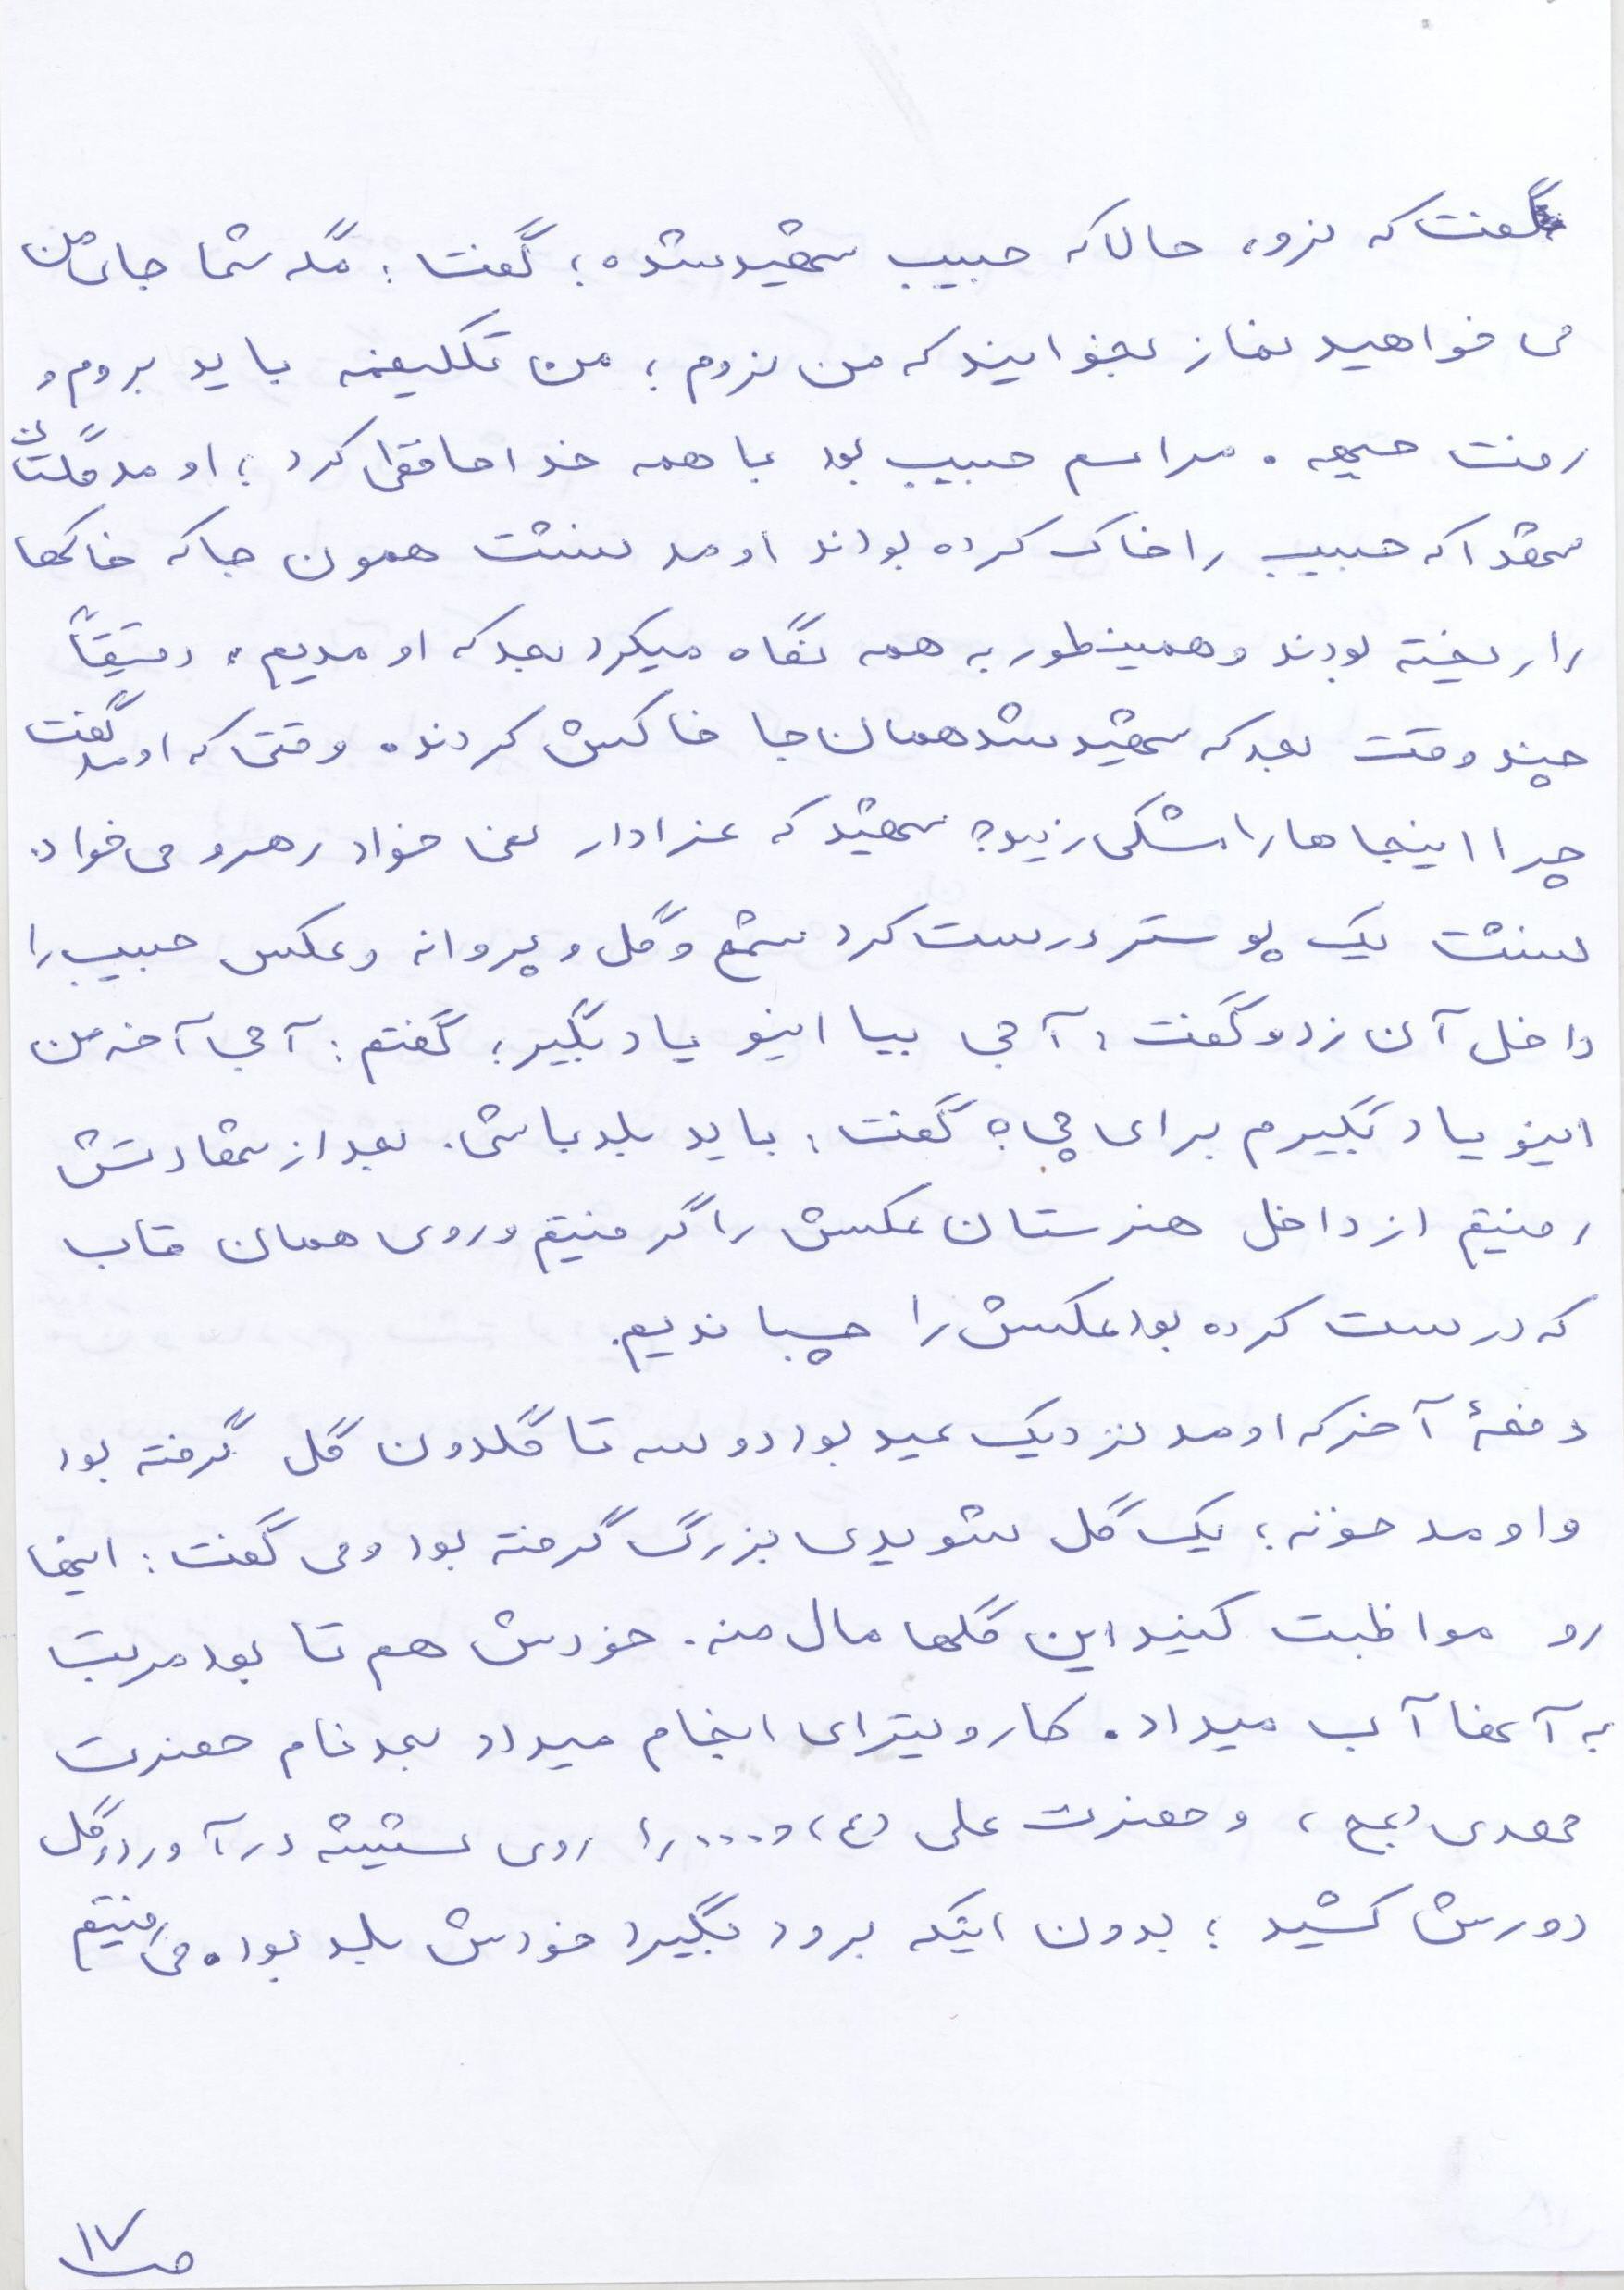 گفت که نرو، حالا که حبیب شهید شده؛ گفت: مگه شما جای من
می خواهید نماز بخوانید که من نروم؛ من تکلیفمه باید بروم و
رفت جبهه. مراسم حبیب بود با همه خداحافظی کرد؛ اومد گلستان
شهدا که حبیب را خاک کرده بودند اومد نشست همون جا که خاکها
را ریخته بودند و همینطور به همه نگاه میکرد بعد که اومدیم، دقیقاً
چند وقت بعد که شهید شد همان جا خاکش کردند. وقتی که اومد گفت
چرا اینجاها را مشکی زدید؟ شهید که عزادار نمی خواد رهرو می خواد.
نشست یک پوستر درست کرد شمع و گل و پروانه و عکس حبیب را
داخل آن زد و گفت: آجی بیا اینو یاد بگیر؛ گفتم: آجی آخه من
اینو یاد بگیرم برای چی؟ گفت: باید بلد باشی. بعد از شهادتش
رفتیم از داخل هنرستان عکسش را گرفتیم و روی همان قاب
که درست کرده بود عکسش را چسباندیم.
دفعهٔ آخر که اومد نزدیک عید بود دو سه تا گلدون گل گرفته بود
و اومد خونه؛ یک گل شویدی بزرگ گرفته بود و می گفت: اینها
رو مواظبت کنید این گلها مال منه. خودش هم تا بود مرتب
به آنها آب میداد. کار ویترای انجام میداد بعد نام حضرت
مهدی (عج)، و حضرت علی (ع) و.... را روی شیشه درآورد و گل
دورش کشید؛ بدون اینکه برود بگیرد خودش بلد بود. می رفتیم
ص ۱۷